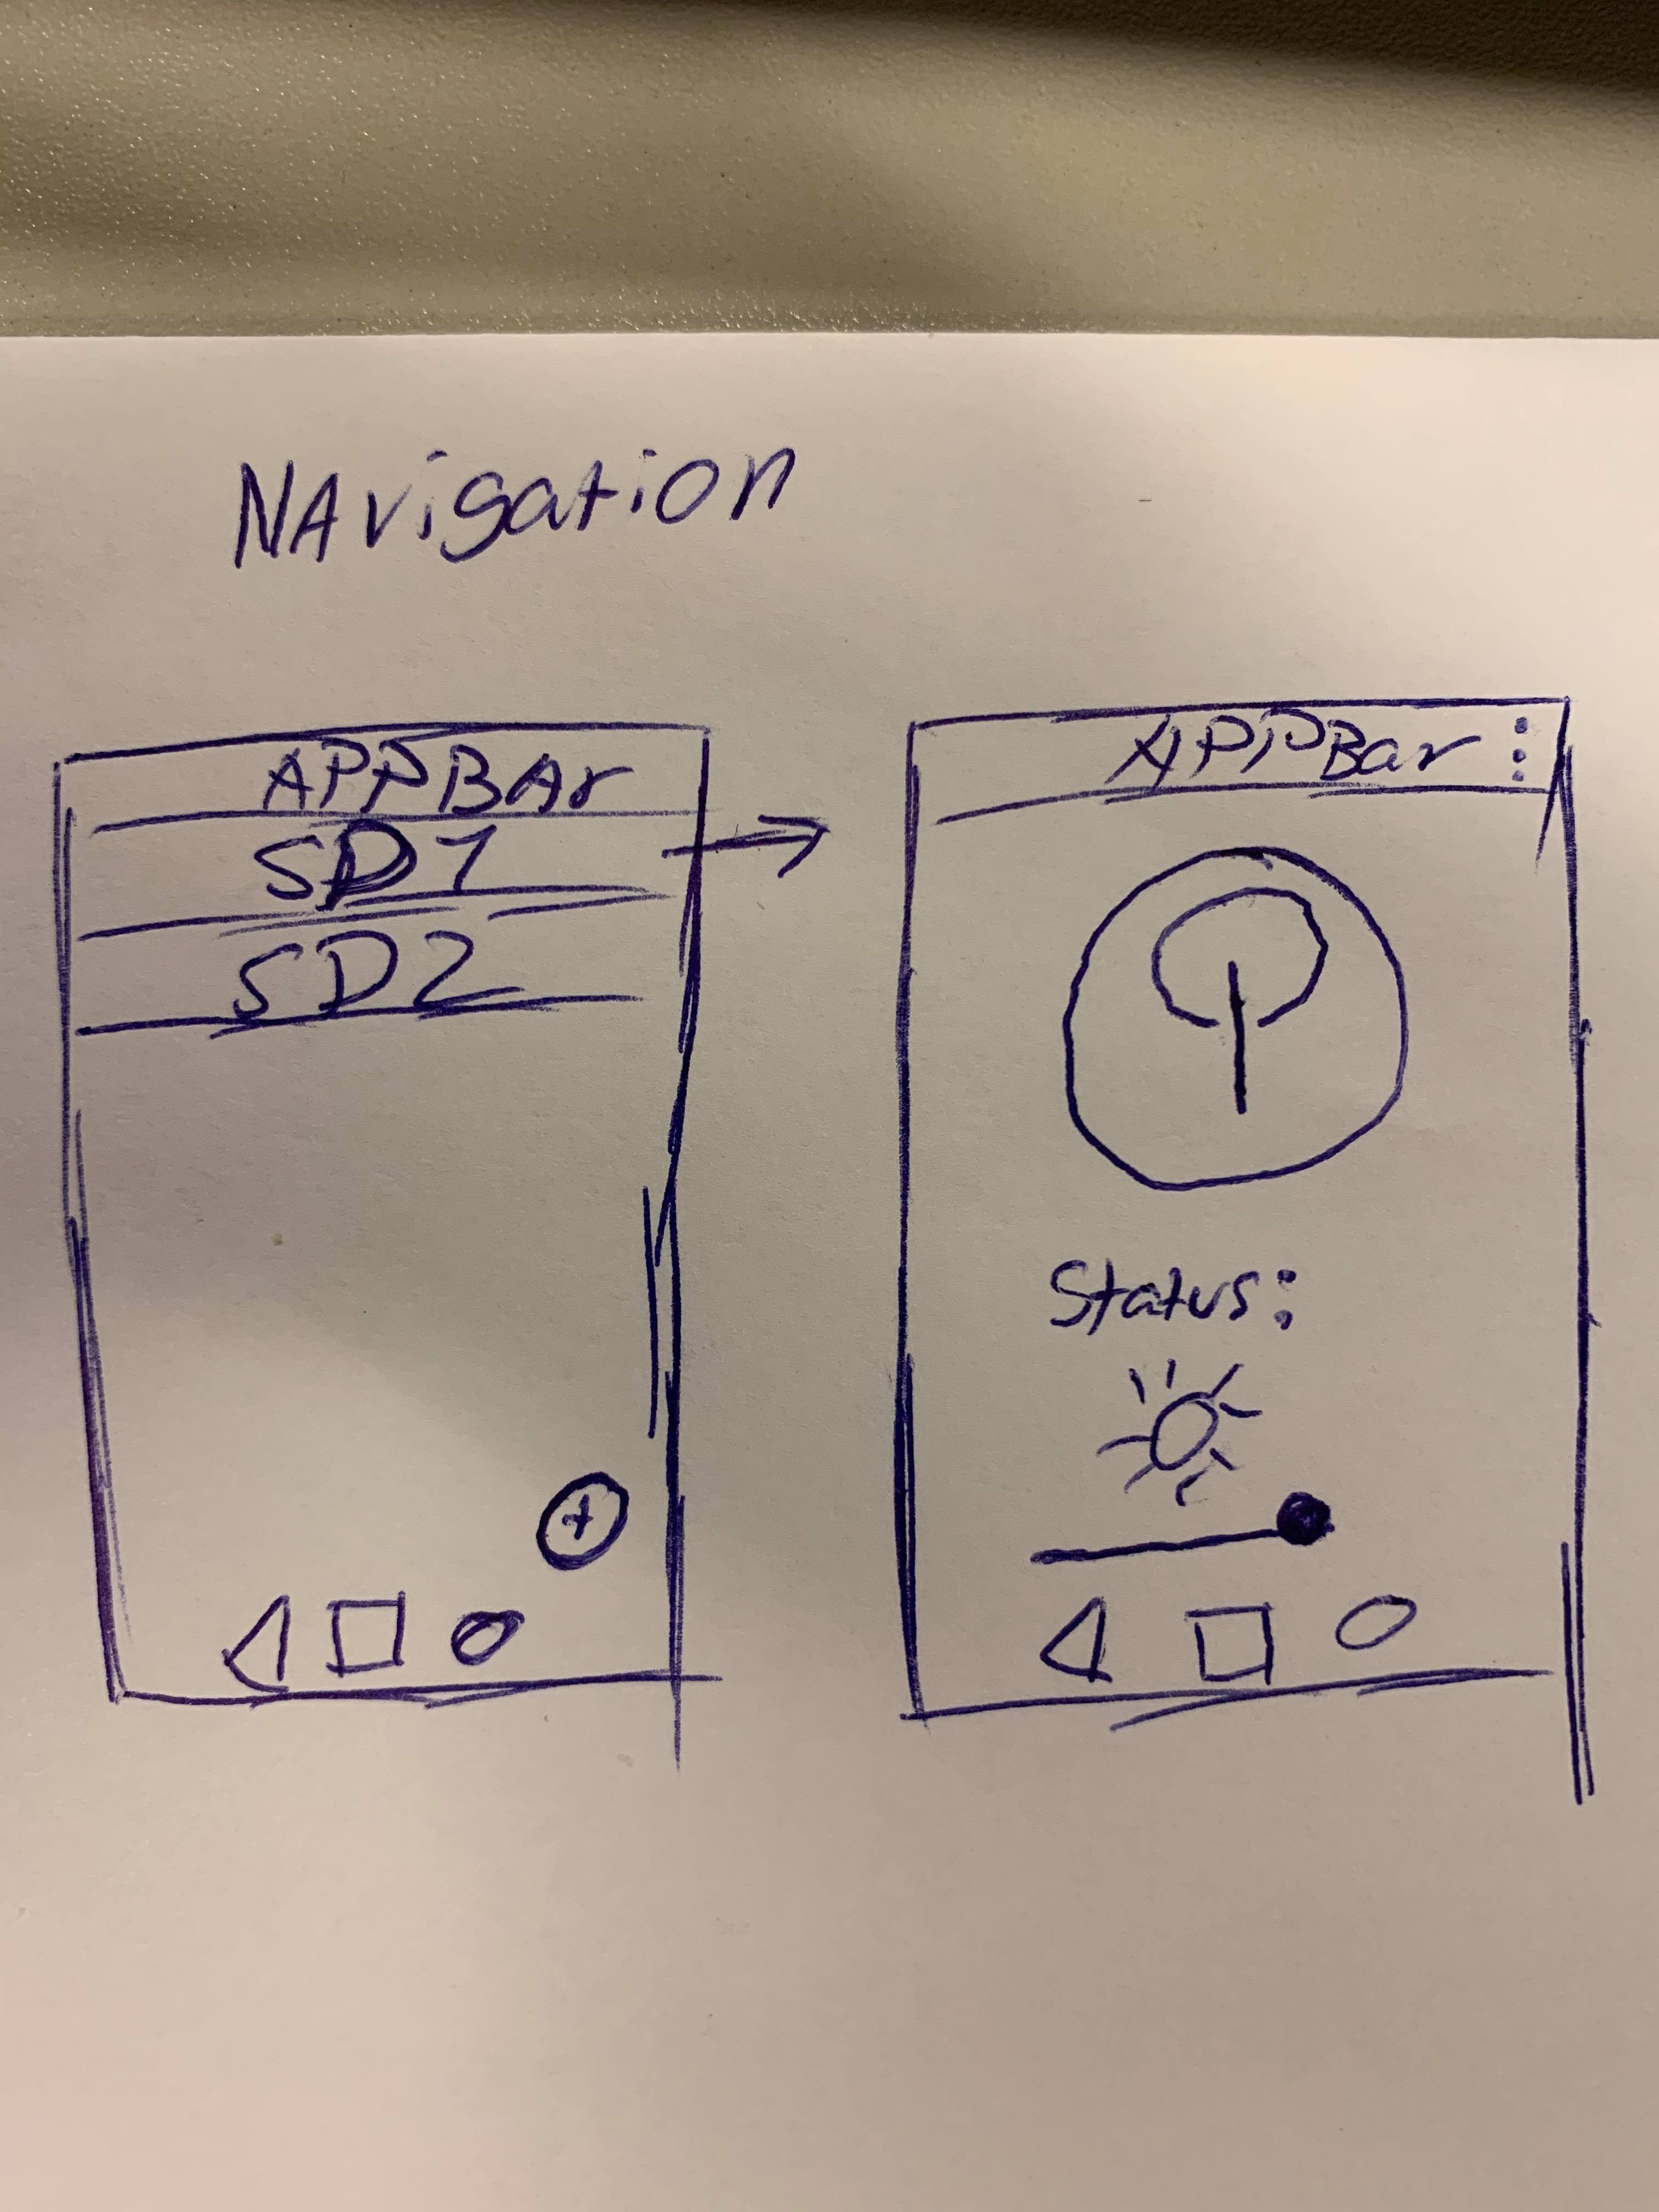 NAvigation
APPBAr
SD1
SD2
+
APPBar
Status: